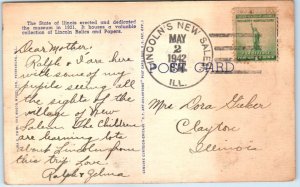 The State of Illinois erected and dedicated
the museum in 1921. It houses a valuable
collection of Lincoln Relics and Papers.
Dear Mother,
Ralph & I are here
with some of my
pupils seeing all
the sights of the
village of New
Salem. The Children
are learning lots
about Lincoln from
this trip. Love
Ralph & Zelma
LINCOLN'S NEW SALEM
MAY
2
1942
ILL.
POST CARD
Mrs Dora Gieker
Clayton
Illinois